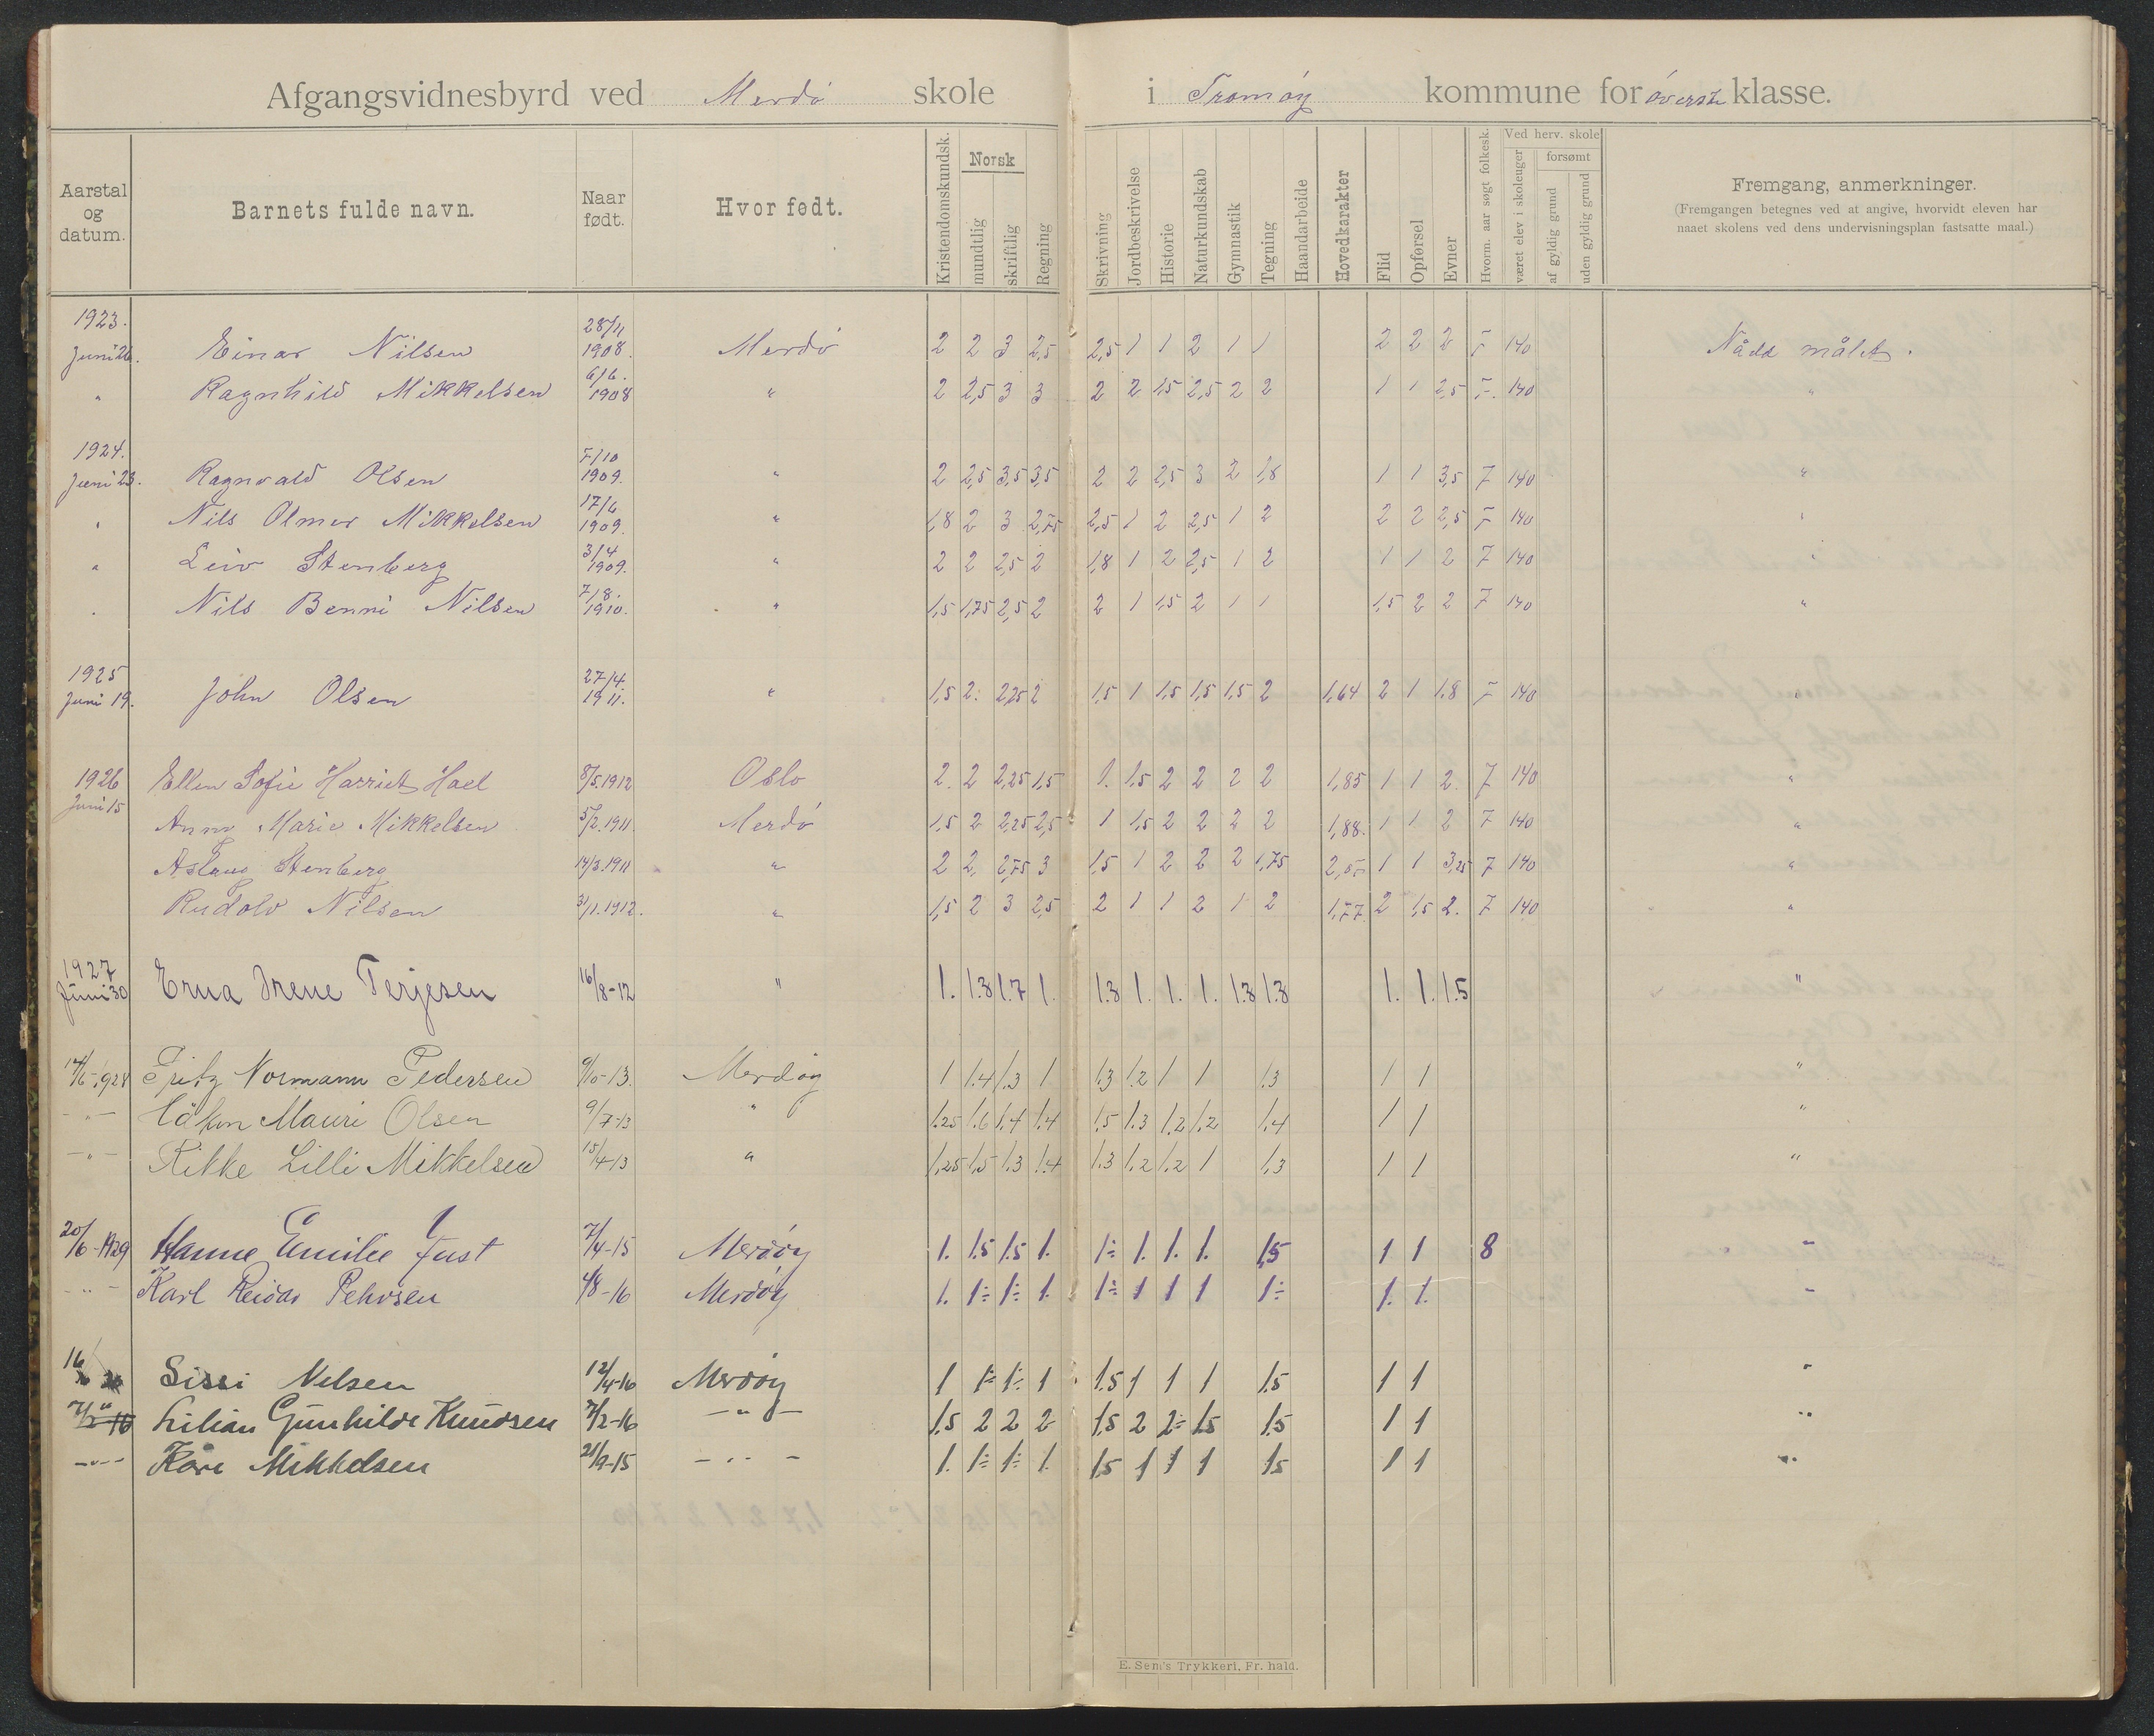 Afgangsvidnesbyrd ved Merdö skole i Tromöy kommune for överste klasse.
Aarstal og datum. Barnets fulde navn. Naar født. Hvor født. Kristendomskundsk. Norsk mundtlig skriftlig Regning Skrivning Jordbeskrivelse Historie Naturkundskab Gymnastik Tegning Haandarbeide Hovedkarakter Flid Opførsel Evner Hvorm. aar søgt folkesk. Ved herv. skole været elev i skoleuger forsømt af gyldig grund uden gyldig grund Fremgang, anmerkninger.
(Fremgangen betegnes ved at angive, hvorvidt eleven har
naaet skolens ved dens undervisningsplan fastsatte maal.)
1923. Juni 26. Einar Nilsen 28/11 1908. Merdö 2 2 3 2,5 2,5 1 1 2 1 1 2 2 2 7 140 Nådd målet.
" Ragnhild Mikkelsen 6/6. 1908 " 2 2,5 3 3 2 2 1,5 2,5 2 2 1 1 2,5 7. 140 "
1924. Juni 23. Ragnvald Olsen 7/10 1909. " 2 2,5 3,5 3,5 2 2 2,5 3 2 1,8 1 1 3,5 7 140 "
" Nils Olmer Mikkelsen 17/6 1909. " 1,8 2 3 2,75 2,5 1 2 2,5 1 2 2 2 2,5 7 140 "
" Leiv Stenberg 3/4 1909. " 2 2 2,5 2 1,8 1 2 2,5 1 2 1 1 2 7 140 "
" Nils Benni Nilsen 7/8. 1910. " 1,5 1,75 2,5 2 2 1 1,5 2 1 1 1,5 2 2 7 140 "
1925 Juni 19. John Olsen 27/4. 1911. " 1,5 2. 2,25 2 1,5 1 1,5 1,5 1,5 2 1,64 2 1 1,8 7 140 "
1926 Juni 15 Ellen Sofie Harriet Hael 8/5.1912 Oslo 2. 2 2,25 1,5 1. 1,5 2 2 2 2 1,85 1 1 2. 7 140 "
Anna Marie Mikkelsen 5/2.1911. Merdö 1,5 2 2,25 2,5 1 1,5 2 2 2 2 1,88. 1 1 2 7 140 "
Aslaug Stenberg 14/3.1911 " 2 2, 2,75 3 1,5 1 2 2 2 1,75 2,05 1 1 3,25 7 140 "
Rudolv Nilsen 31/1.1912. " 1,5 2 3 2,5 2 1 1 2 1 2 1,77. 2 1,5 2. 7 140 "
1927 Juni 30 Erna Irene Terjesen 16/8-12 " 1. 1.3 1.7 1. 1.3 1. 1. 1. 1.3 1.3 1. 1. 1.5 "
14/6-1928 Fritz Normann Pedersen 9/10-13. Merdøy 1 1.4 1.3 1 1.3 1.2 1 1 1.3 1 1 "
-"- Håkon Mauri Olsen 9/7-13 " 1.25 1.6 1.4 1.4 1.5 1.3 1.2 1.2 1.4 1 1 "
-"- Rikke Lilli Mikkelsen 15/4-13 " 1,25 1,5 1.3 1.4 1.3 1.2 1.2 1 1,3 1 1 "
20/6-1929 Hanne Emilie Just 7/4-15 Merdøy 1. 1.5 1.5 1. 1÷ 1. 1. 1. 1,5 1 1 8 "
-"- Karl Reidar Pehrsen 4/8-16 Merdøy 1. 1÷ 1÷ 1. 1÷ 1 1 1 1÷ 1. 1. "
16/ Sissi Nilsen 12/4-16 Merdøy 1 1÷ 1÷ 1 1.5 1 1 1 1.5 1 1 "
Lilian Gunhilde Knudsen 7/2-16 -"- 1.5 2 2 2 1.5 2 2÷ 1.5 1.5 1 1 "
-"- Kåre Mikkelsen 21/9-15 -"- 1. 1÷ 1÷ 1. 1.5 1 1 1 1.5 1 1 "
E. Sem's Trykkeri, Fr. hald.